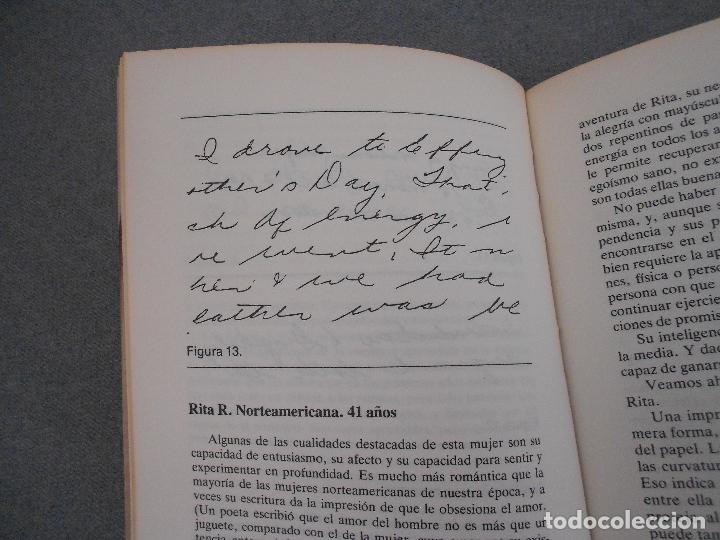 I drove to Jeffery
other's Day, That,
ch Of Energy, i
re went; It n
her & we had
eather was be
Figura 13.
Rita R. Norteamericana. 41 años
Algunas de las cualidades destacadas de esta mujer son su
capacidad de entusiasmo, su afecto y su capacidad para sentir y
experimentar en profundidad. Es mucho más romántica que la
mayoría de las mujeres norteamericanas de nuestra época, y a
veces su escritura da la impresión de que le obsesiona el amor.
(Un poeta escribió que el amor del hombre no es más que un
juguete, comparado con el de la mujer,
aventura de Rita, su ne
la alegría con mayúscul
dos repentinos de pa
energía en todos los a
le permite recuperar
egoísmo sano, no ex
son todas ellas buena
No puede haber
misma, y, aunque s
pendencia y sus p
encontrarse en el
bien requiere la ap
nes, física o perso
persona con que
continuar ejercie
ciones de promis
Su inteligenc
la media. Y dad
capaz de ganars
Veamos ah
Rita.
Una impre
mera forma,
del papel. L
las curvatur
Eso indica
entre ella
todocoleccion